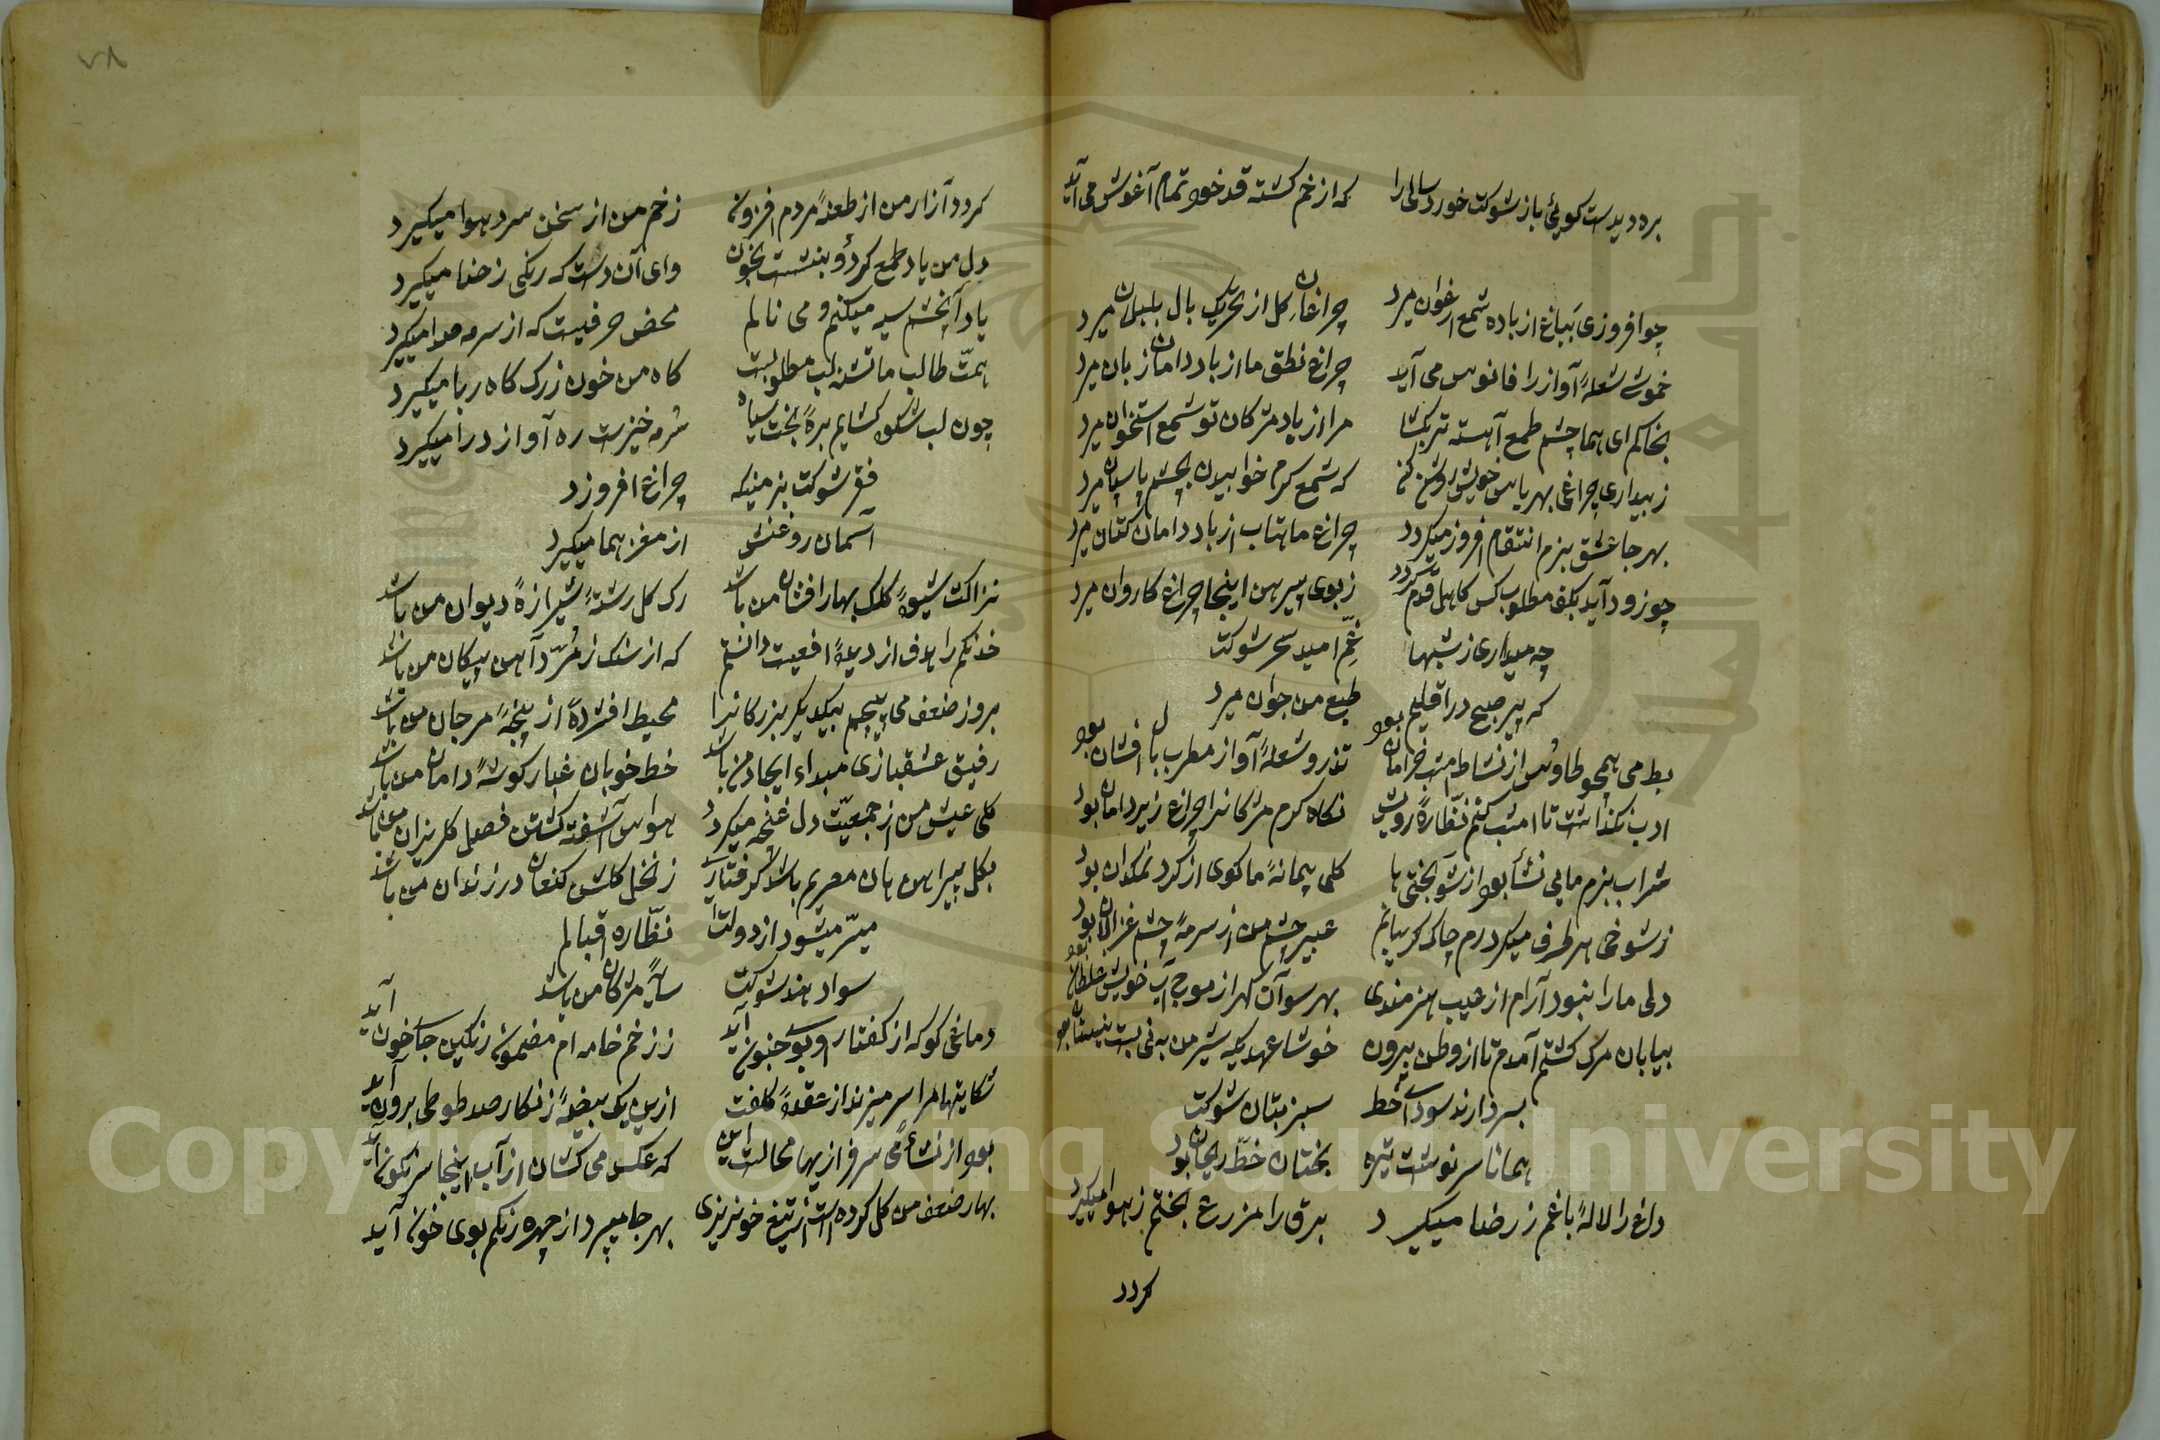 بره دیدست کویئ باز شوکت خورد سالی را که از خم کشته قد خود تمام آغوش می آید
چو افروزی بباغ از باده شمع ارغوان میرد چراغان کل از تحریک بال بلبلان میرد
خموشی شعلهٔ آواز را فانوس می آید چراغ نطق ما از باد دامان زبان میرد
بخاکم ای هما چشم طمع آهسته تر بکشا مرا از یاد مژکان تو شمع استخوان میرد
ز بیداری چراغی بهر پاس خویش روشن کن که شمع کرم خوابیدن بچشم پاسبان میرد
بهر جا عشق بزم انتقام افروز میکردد چراغ ماهتاب از باد دامان کتان میرد
چو زود آید بکف مطلوب کس کاهل قدم کردد ز بوی پیرهن اینجا چراغ کاروان میرد
چه میداری ز شبها غم امید سحر شوکت
که پیر صبح در اقلیم طبع من جوان میرد
بط می همچو طاوس از نشاط امشب خرامان بود تذرو شعلهٔ آواز مطرب بال افشان بود
ادب نکذاشت تا امشب کنم نظّارهٔ رویش نکاه کرم مژکانرا چراغ زیر دامان بود
شراب بزم ما بی نشأ بود از شور بختی ها کلی پیمانهٔ ما کوی از کرد نمکدان بود
ز شوخی هر طرف میکرد رم چاک کریبانم عبیر چشم من از سرمهٔ چشم غزالان بود
دلی ما را نبود آرام از عیب هنرمندی بهر سو آن کهر از موج آب خویش غلطان بود
بیابان مرک کشتم آمدم تا از وطن بیرون خوشا عهدیکه شیر من به نی بست نیستان بود
بسر دارند سودای خط سبز بتان شوکت
همانا سرنوشت تیره بختان خطّ ریحان بود
داغ را لالهٔ باغم ز رضا میکیرد برق را مزرع بختم ز هوا میکیرد
کردد
۷۸
کردد آزار من از طعنهٔ مردم افزون زخم من از سخن سرد هوا میکیرد
دل من یاد طمع کرد و بنشست بخون وای آن دست که رنکی ز حنا میکیرد
یاد آنچشم سیه میکنم و می نالم محض حرفیست که از سرمه صدا میکیرد
همّت طالب ما تشنه لب مطلوبست کاه من خون ز رک کاه ربا میکیرد
چون لب شکوه کشایم برهٔ بخت سیاه سرمه خیزست ره آواز درا میکیرد
فقر شوکت بزمینکه چراغ افروزد
آسمان روغنش از مغز هما میکیرد
نزاکت شیوهٔ کلک بهار افشان من باشد رک کل رشتهٔ شیرازهٔ دیوان من باشد
خدنکم را هدف از دیدهٔ افعیست دانستم که از سنک زمرّد آهن پیکان من باشد
بروز ضعف می پیچم بیکدیکر بزرکانرا محیط افشردهٔ از پنجهٔ مرجان من باشد
رفیق عشقبازی مبداء ایجاد من باشد خط خوبان غبار کوشهٔ دامان من باشد
کلی عیش من از جمعیّت دل غنچه میکردد هواس آشفته کشتن فصل کلریزان من باشد
بکل پیراهن یان مصریم باشد کرفتاری ز نخل کاشن کنعان در زندان من باشد
میسّر میشود از دولت نظّاره اقبالم
سواد هند شوکت سایهٔ مژکان من باشد
دماغی کو که از کفتار او بوی جنون آید ز زخم خامه ام مضمون رنکین جای خون آید
شکایتها مرا سر میزند از عقدهٔ کلفت ازین یک بیضهٔ زنکار صد طوطی برون آید
بود از نشأ می سرفرازیها محالست این که عکس می کشان از آب اینجا سرنکون آید
بهار ضعف من کل کرده است از تیغ خونریزی بهر جا میپرد از چهره رنکم بوی خون آید